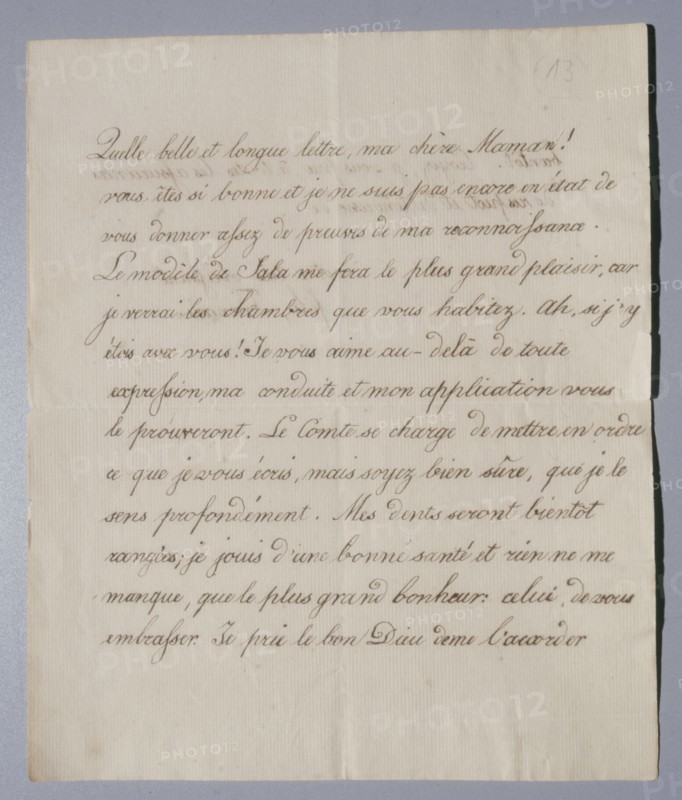 (13
Quelle belle et longue lettre, ma chère Maman!
vous êtes si bonne et je ne suis pas encore en état de
vous donner assez de preuves de ma reconnoissance.
Le modèle de Sala me fera le plus grand plaisir, car
je verrai les chambres que vous habitez. Ah, si j'y
étois avec vous! Je vous aime au-delà de toute
expression, ma conduite et mon application vous
le prouveront. Le Comte se charge de mettre en ordre
ce que je vous écris, mais soyez bien sûre, que je le
sens profondément. Mes dents seront bientôt
rangées, je jouis d'une bonne santé et rien ne me
manque, que le plus grand bonheur: celui, de vous
embrasser. Je prie le bon Dieu de me l'accorder
PHOTO12